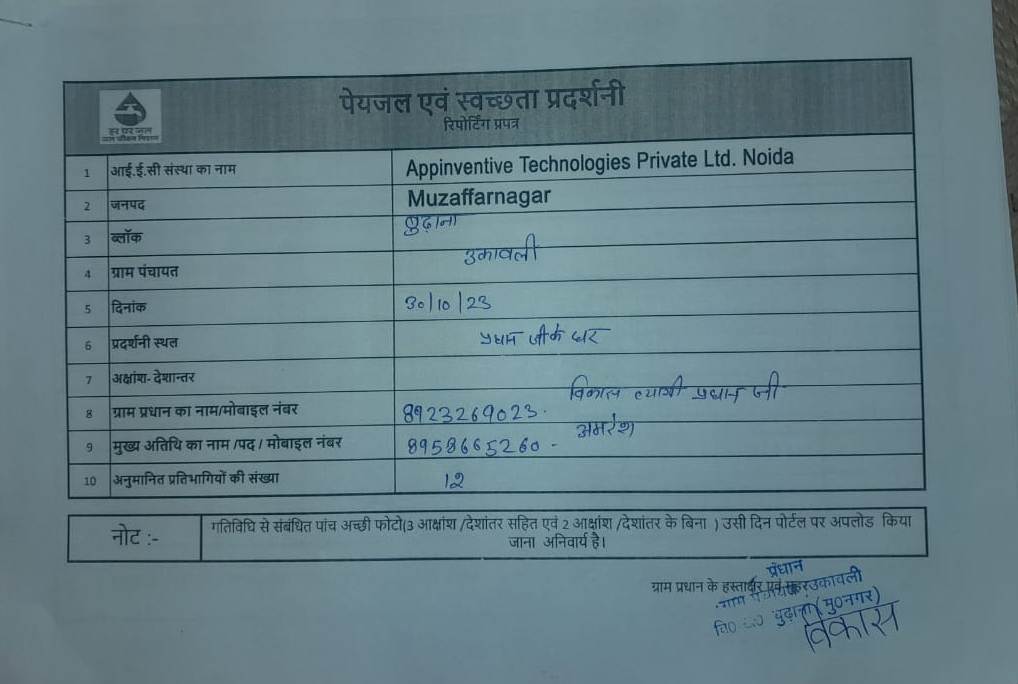 पेयजल एवं स्वच्छता प्रदर्शनी
हर घर जल
जल जीवन मिशन
रिपोर्टिंग प्रपत्र
1 आई.ई.सी संस्था का नाम Appinventive Technologies Private Ltd. Noida
2 जनपद Muzaffarnagar
3 ब्लॉक बुढ़ाना
4 ग्राम पंचायत उकावली
5 दिनांक 30/10/23
6 प्रदर्शनी स्थल प्रधान जी के घर
7 अक्षांश- देशान्तर
8 ग्राम प्रधान का नाम/मोबाइल नंबर 8923269023. विकास त्यागी प्रधान जी
9 मुख्य अतिथि का नाम /पद / मोबाइल नंबर 8958665260 - अमरेश
10 अनुमानित प्रतिभागियों की संख्या 12
नोट :- गतिविधि से संबंधित पांच अच्छी फोटो(3 आक्षांश /देशांतर सहित एवं 2 आक्षांश /देशांतर के बिना ) उसी दिन पोर्टल पर अपलोड किया
जाना अनिवार्य है।
प्रधान
ग्राम प्रधान के हस्ताक्षर एवं मुहर
ग्राम पंचायत उकावली
वि0 बुढ़ाना (मु0नगर)
विकास